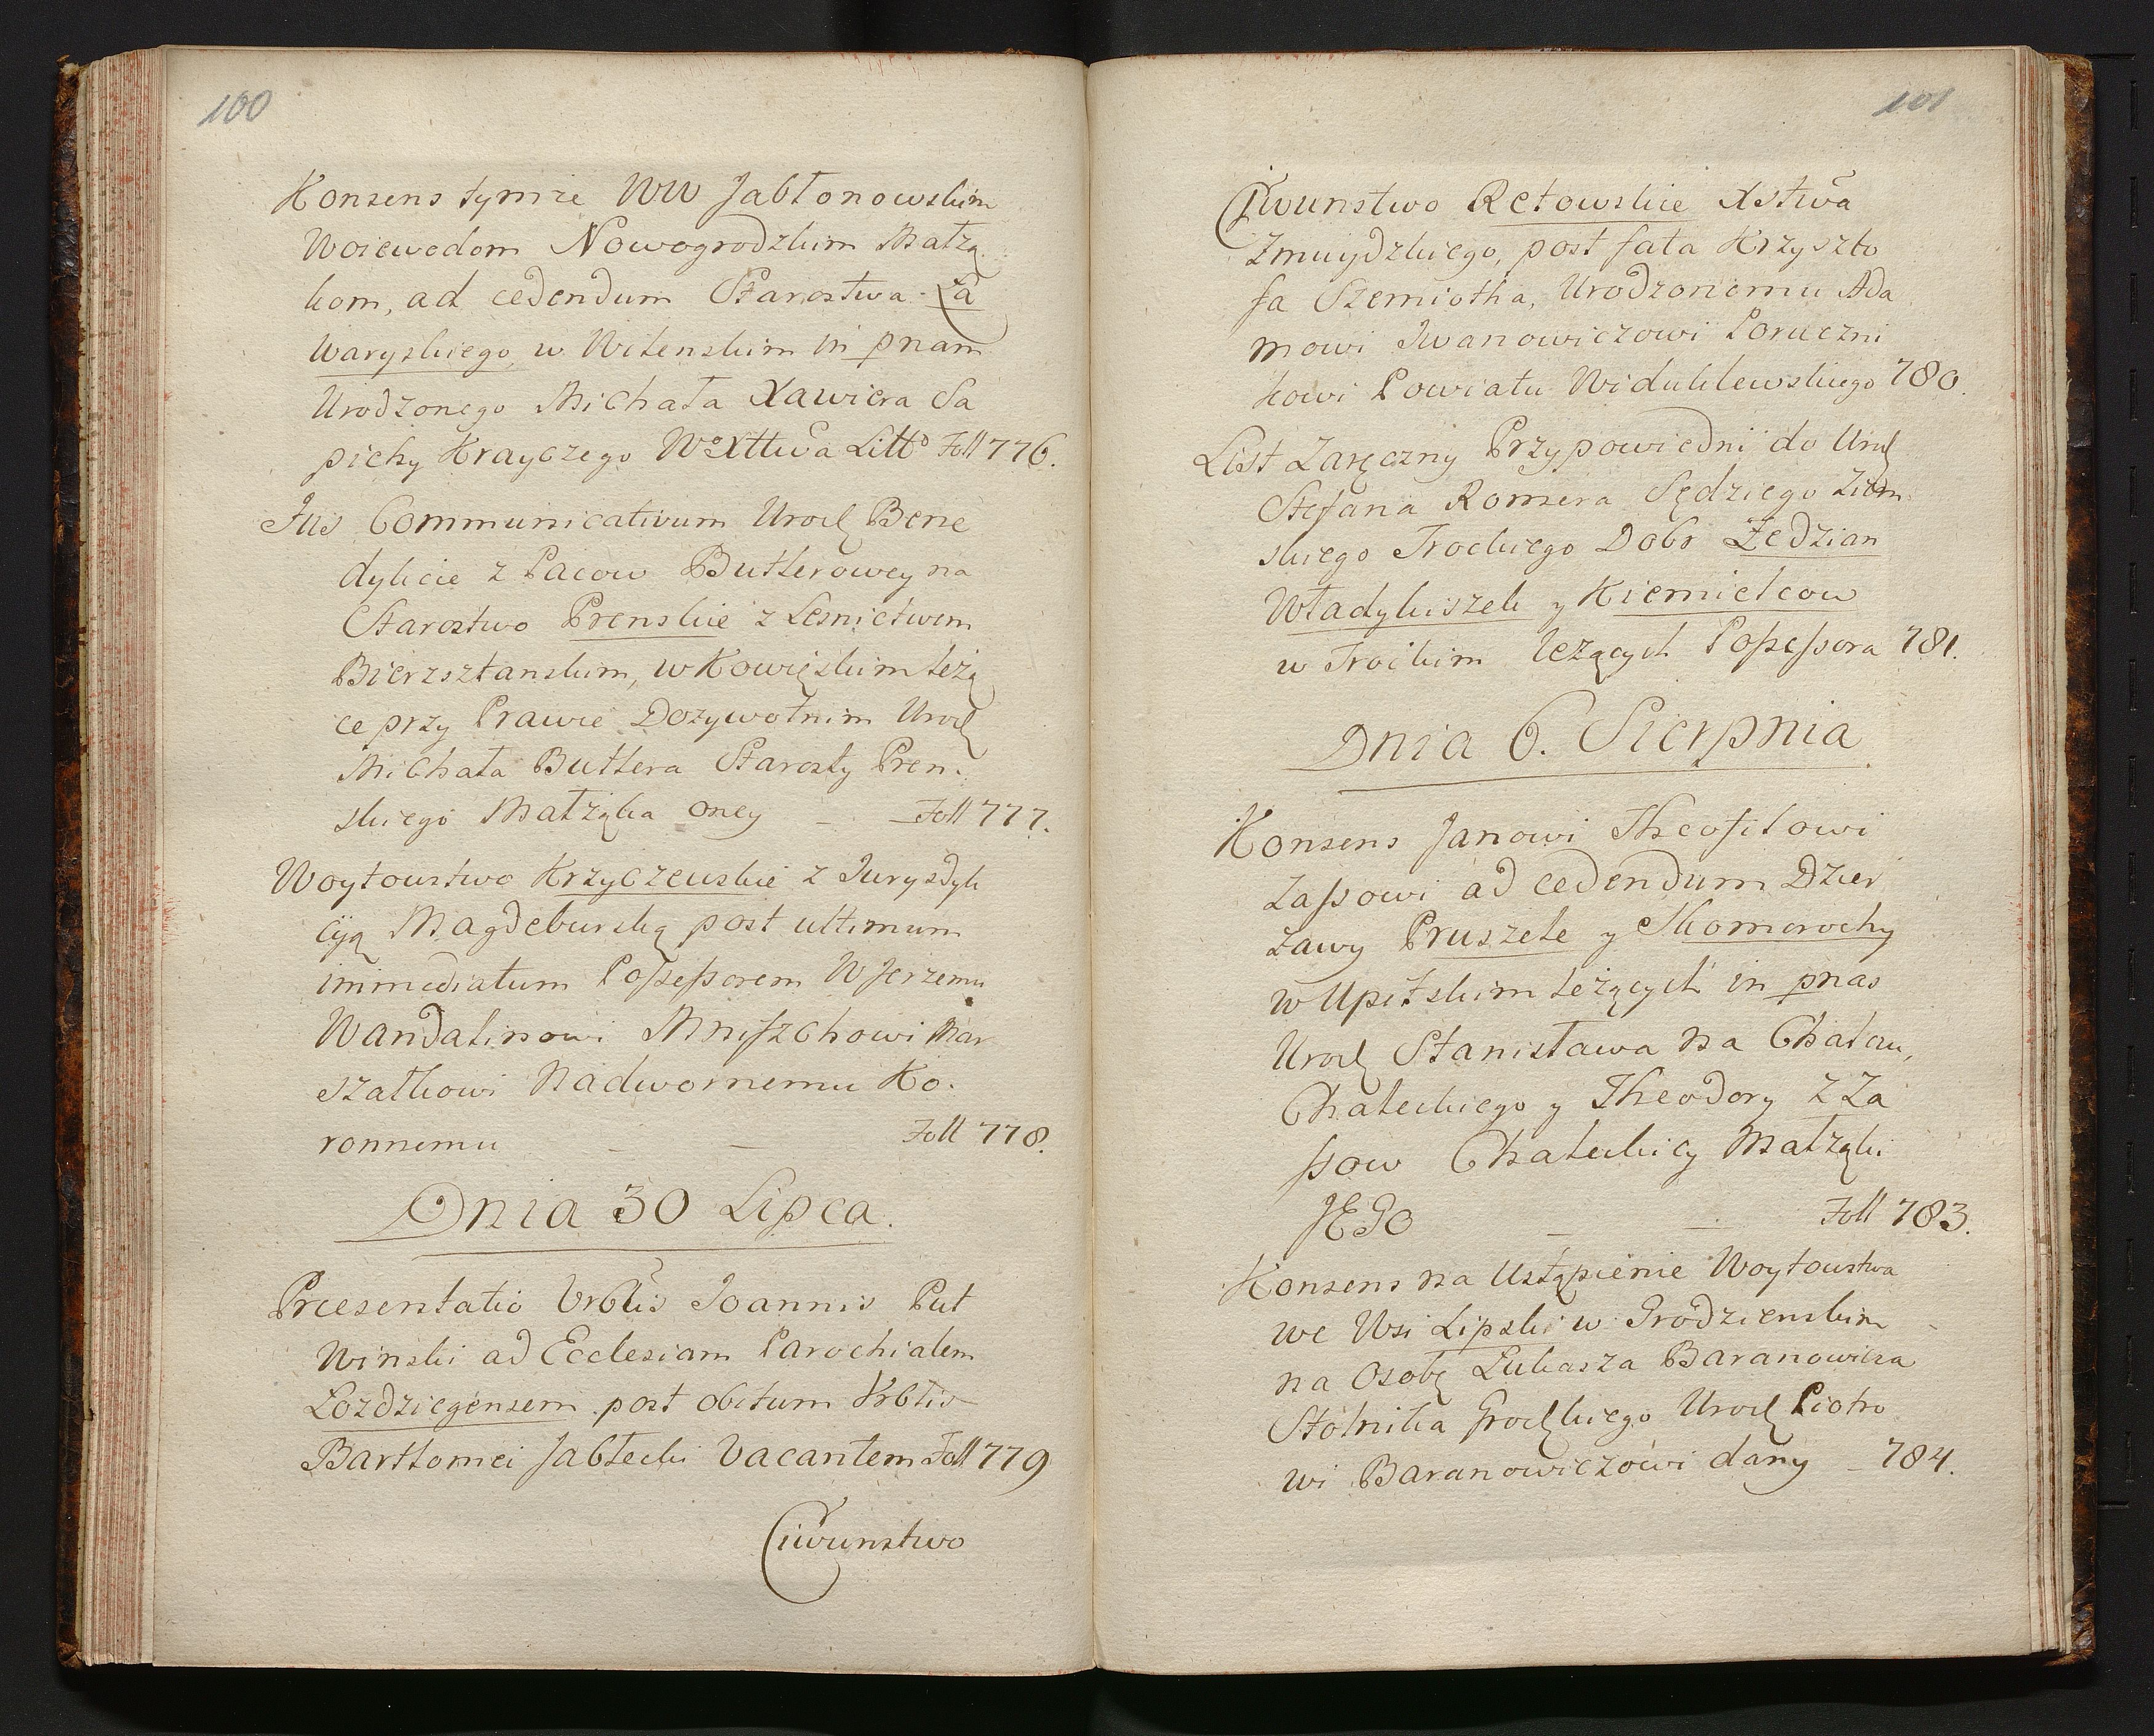 100
Konsens tymże WW Jabłonowskim
Woiewodom Nowogrodzkim Małżą
kom, ad cedendum Starostwa Ła
waryskiego, w Wilenskim in pnam
Urodzonego Michała Xawiera Sa
piehy Krayczego Wo Xttwa Litto Foll 776.
Jus Communicativum Urodz Bene
dykcie z Pacow Butlerowey na
Starostwo Prenskie z Lesnictwem
Bierzsztanskim, w Kowięskim leżą
ce przy Prawie Dożywotnim Urodz
Michała Butlera Starosty Pren.
skiego Małżąka oney – – Foll 777.
Woytowstwo Krzyczewskie z Jurysdyk
cyą Magdeburską post ultimum
immediatum Possessorem W Jerzemu
Wandalinowi Mniszchowi Mar
szałkowi Nadwornemu Ko.
ronnemu – – Foll 778.
Dnia 30 Lipca.
Præsentatio Vrblis Joannis Put
winski ad Ecclesiam Parochialem
Łozdziegensem post obitum Vrblis
Bartłomei Jabłecki vacantem Foll 779
Ciwunstwo
101
Ciwunstwo Retowskie Xstwa
Zmuydzkiego, post fata Krzyszto
fa Szemiotha, Urodzonemu Ada
mowi Jwanowiczowi Poruczni
kowi Powiatu Widuklewskiego 780.
List Zaręczny Przypowiedni do Urodz
Stefana Romera Sędziego Ziem
skiego Trockiego Dobr Zedzian
Władykiszek y Kiemielcow
w Trockim leżących Possessora 781.
Dnia 6. Sierpnia
Konsens Janowi Theofilowi
Zassowi ad cedendum Dzier
żawy Pruszele y Skomorochy
w Upitskim leżących in pnas
Urodz Stanisława na Chalcu,
Chaleckiego y Theodory z Za
ssow Chaleckicy Małżąki
JEGO – – Foll 783.
Konsens na Ustąpienie Woytowstwa
we Wsi Lipski w Grodzienskim
na Osobę Łukasza Baranowicza
Stolnika Grodzkiego Urodz Piotro
wi Baranowiczowi dany – 784.